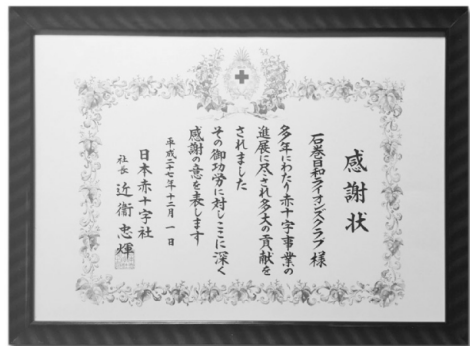 感謝状
石巻日和ライオンズクラブ様
多年にわたり赤十字事業の
進展に尽され多大の貢献を
されました
その御功労に対しここに深く
感謝の意を表します
平成二十七年十二月一日
日本赤十字社
社長 近衞忠煇